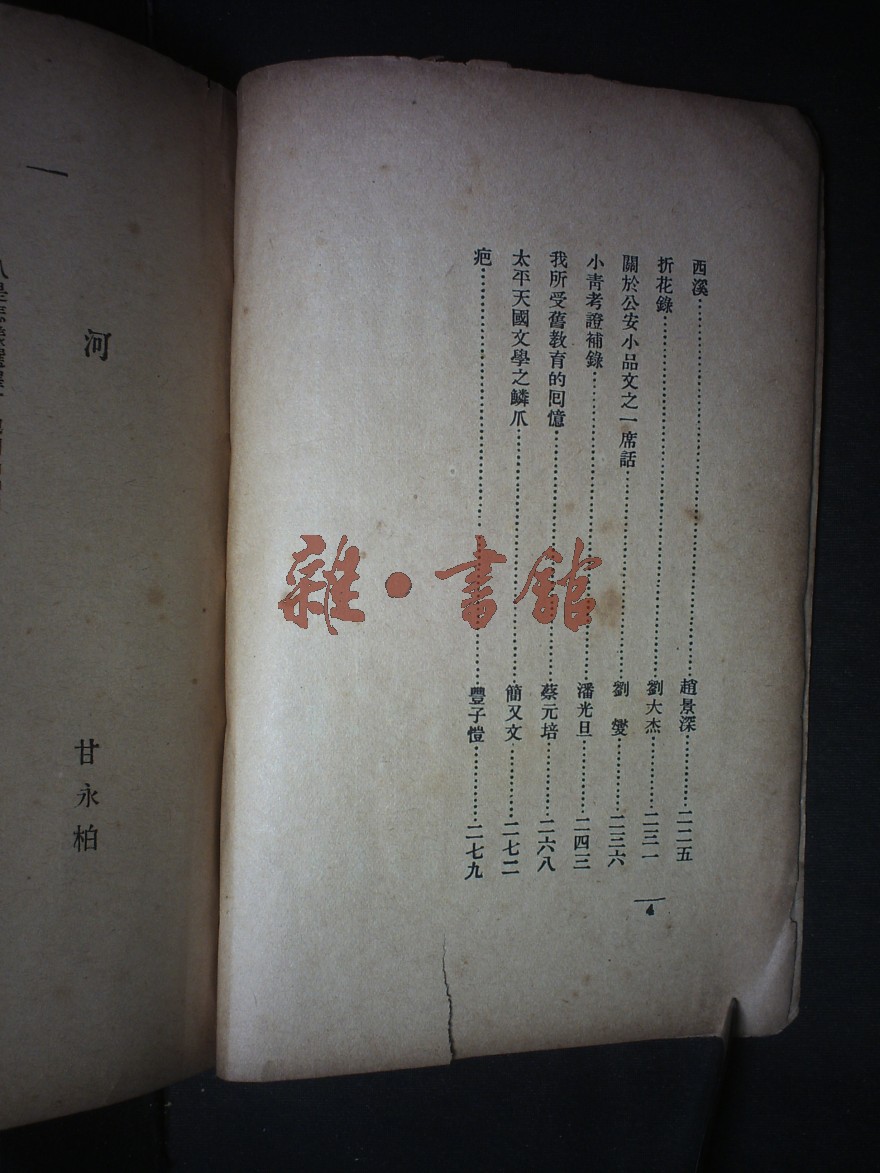 西溪……………………………趙景深…………二二五
折花錄……………………………劉大杰…………二三一
關於公安小品文之一席話……………………………劉燮…………二三六
小青考證補錄……………………………潘光旦…………二四三
我所受舊教育的回憶……………………………蔡元培…………二六八
太平天國文學之鱗爪……………………………簡又文…………二七二
疤……………………………豐子愷…………二七九
4
雜·書館
河
甘永柏
一